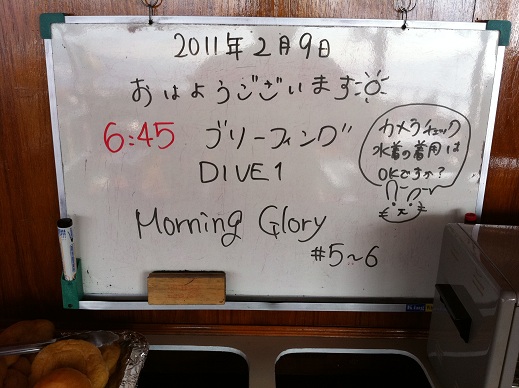 2011年2月9日
おはようございます
6:45 ブリーフィング
DIVE1
Morning Glory
#5~6
カメラチェック
水着の着用は
OKですか?
King